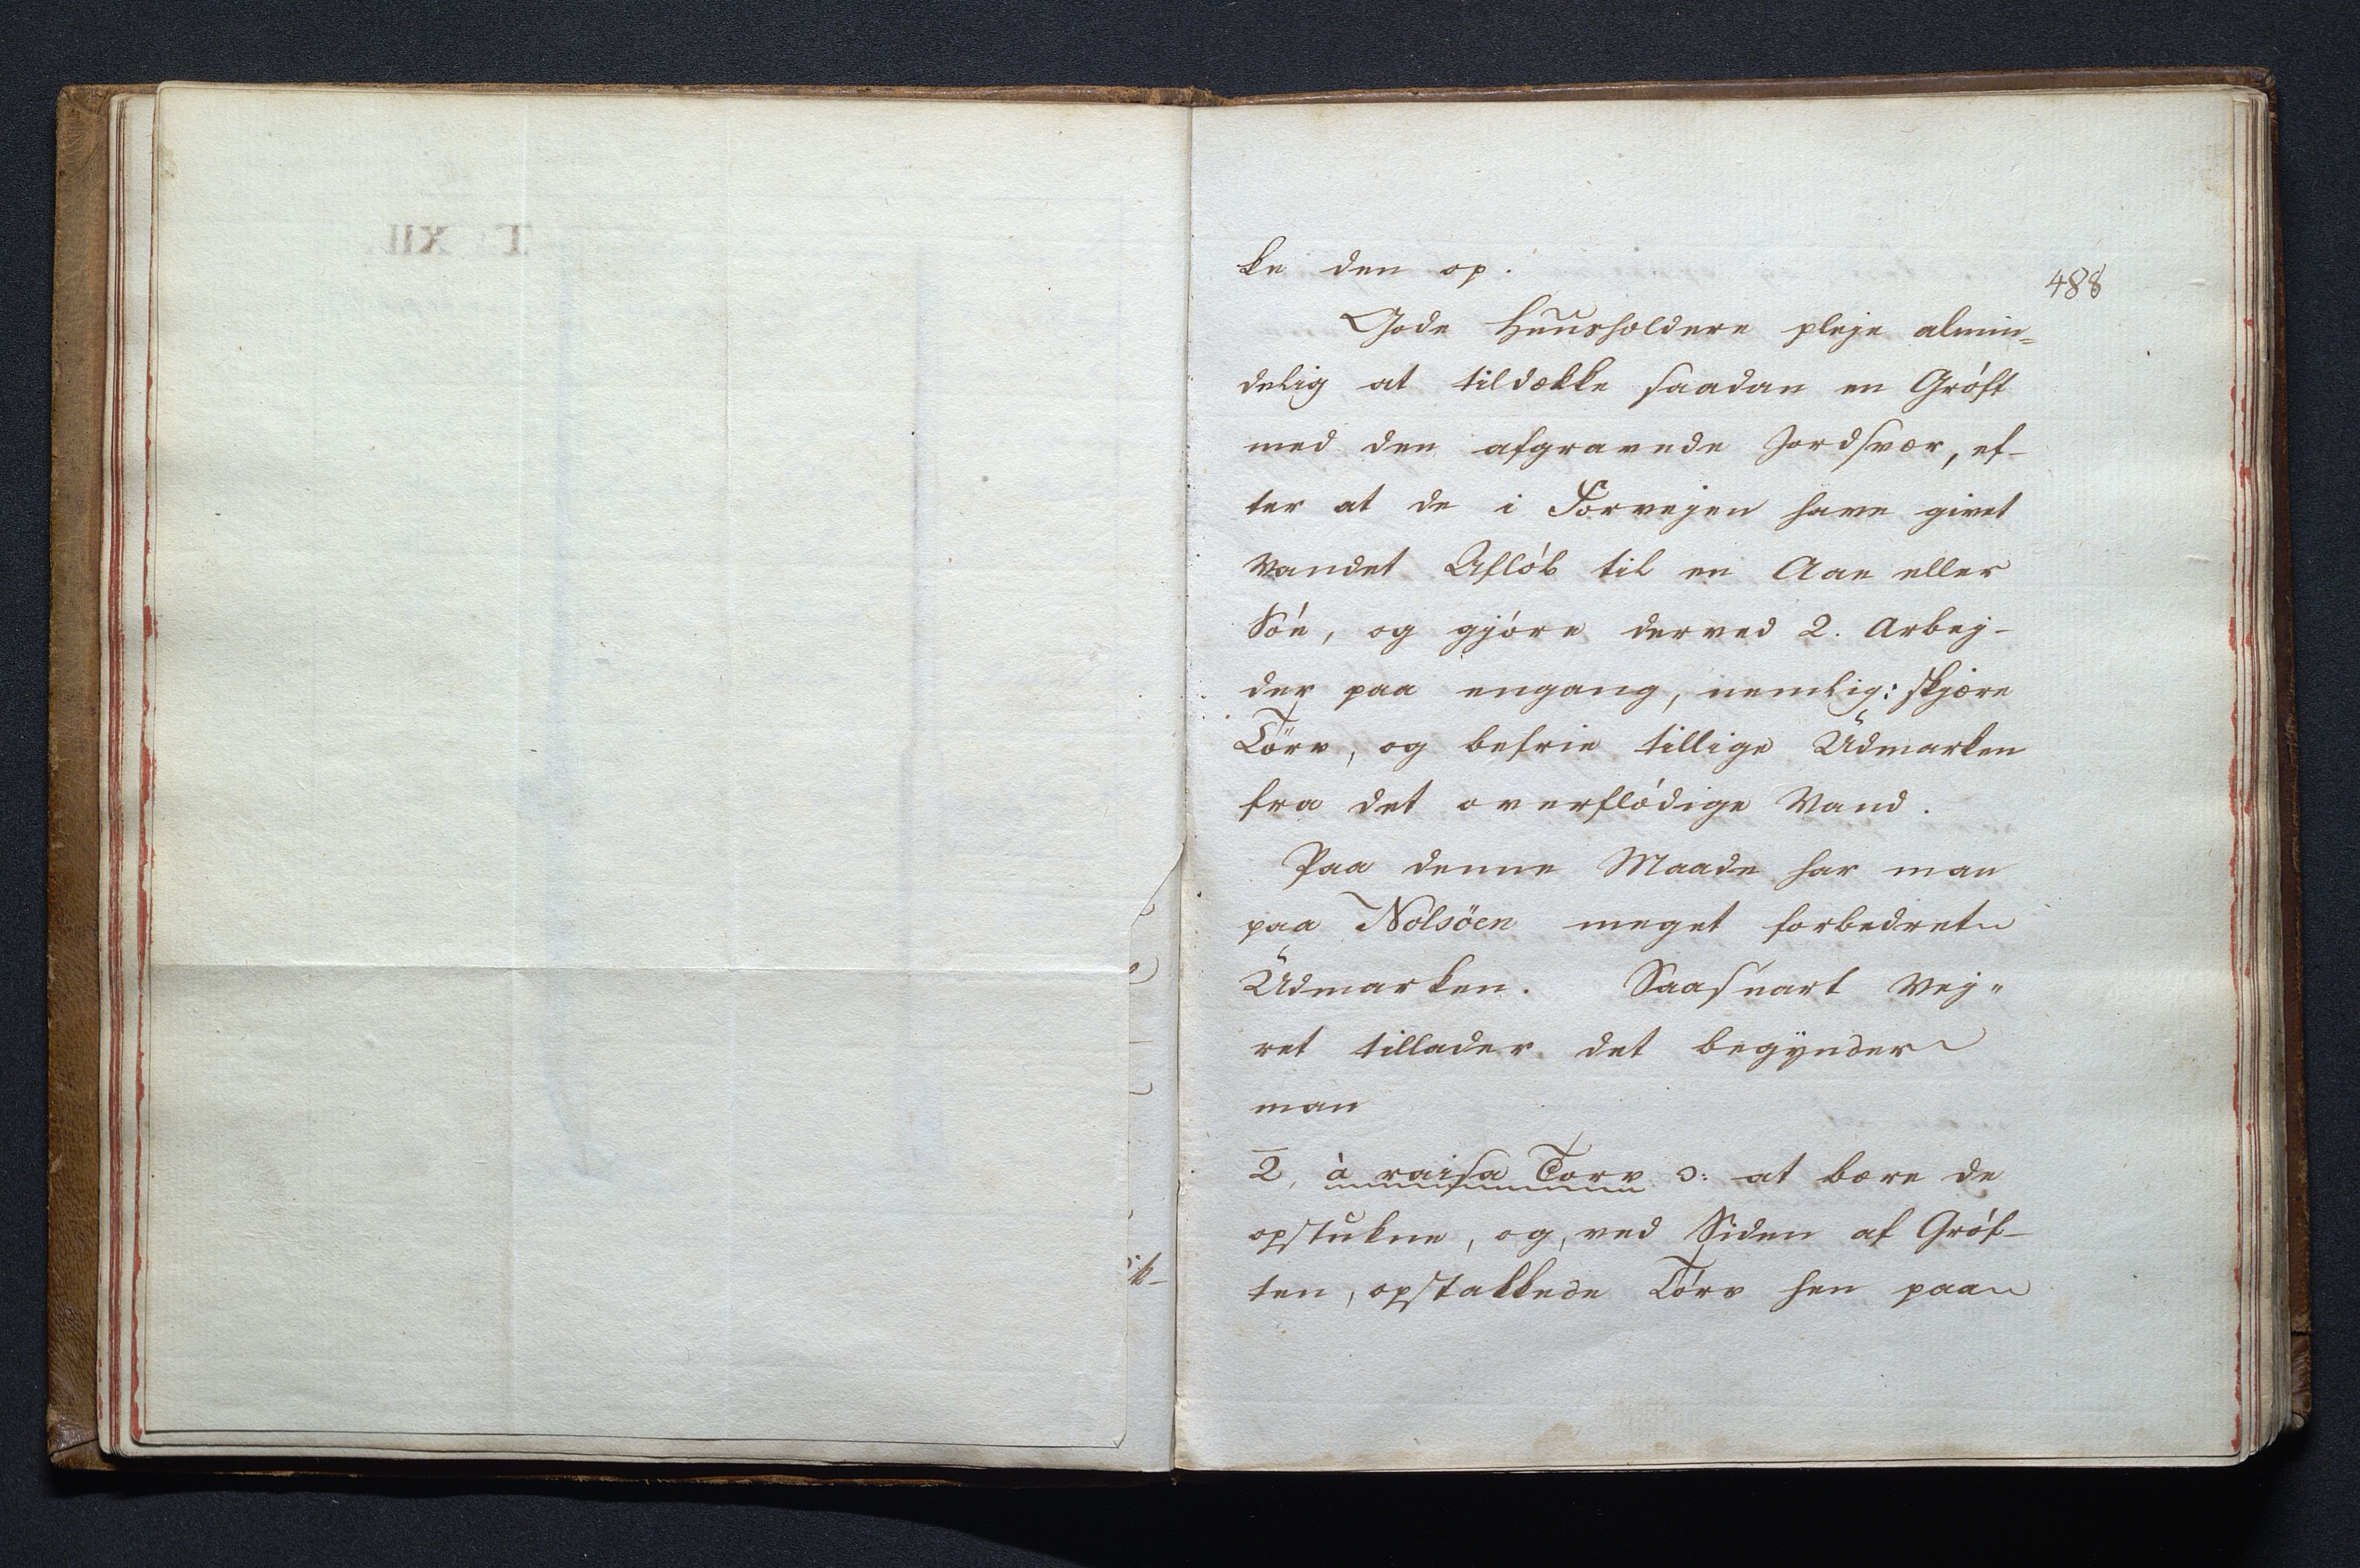 T. XII.
ke den op.
488
Gode Huusholdere pleje almin=
delig at tildække saadan en Gróft
med den afgravede Jordsvær, ef-
ter at de i Forvejen have givet
Vandet Aflób til en Aae eller
Sóe, og gjóre derved 2. Arbej-
der paa engang, nemlig: skjære
Törv, og befrie tillige Udmarken
fra det overflódige Vand.
Paa denne Maade har man
paa Nolsöen meget forbedret
Udmarken. Saasnart Vej"
ret tillader det begÿnder
man
2, à raisa Torv ɔ: at bære de
opstukne, og, ved Siden af Gróf-
ten, opstakkede Tórv hen paa